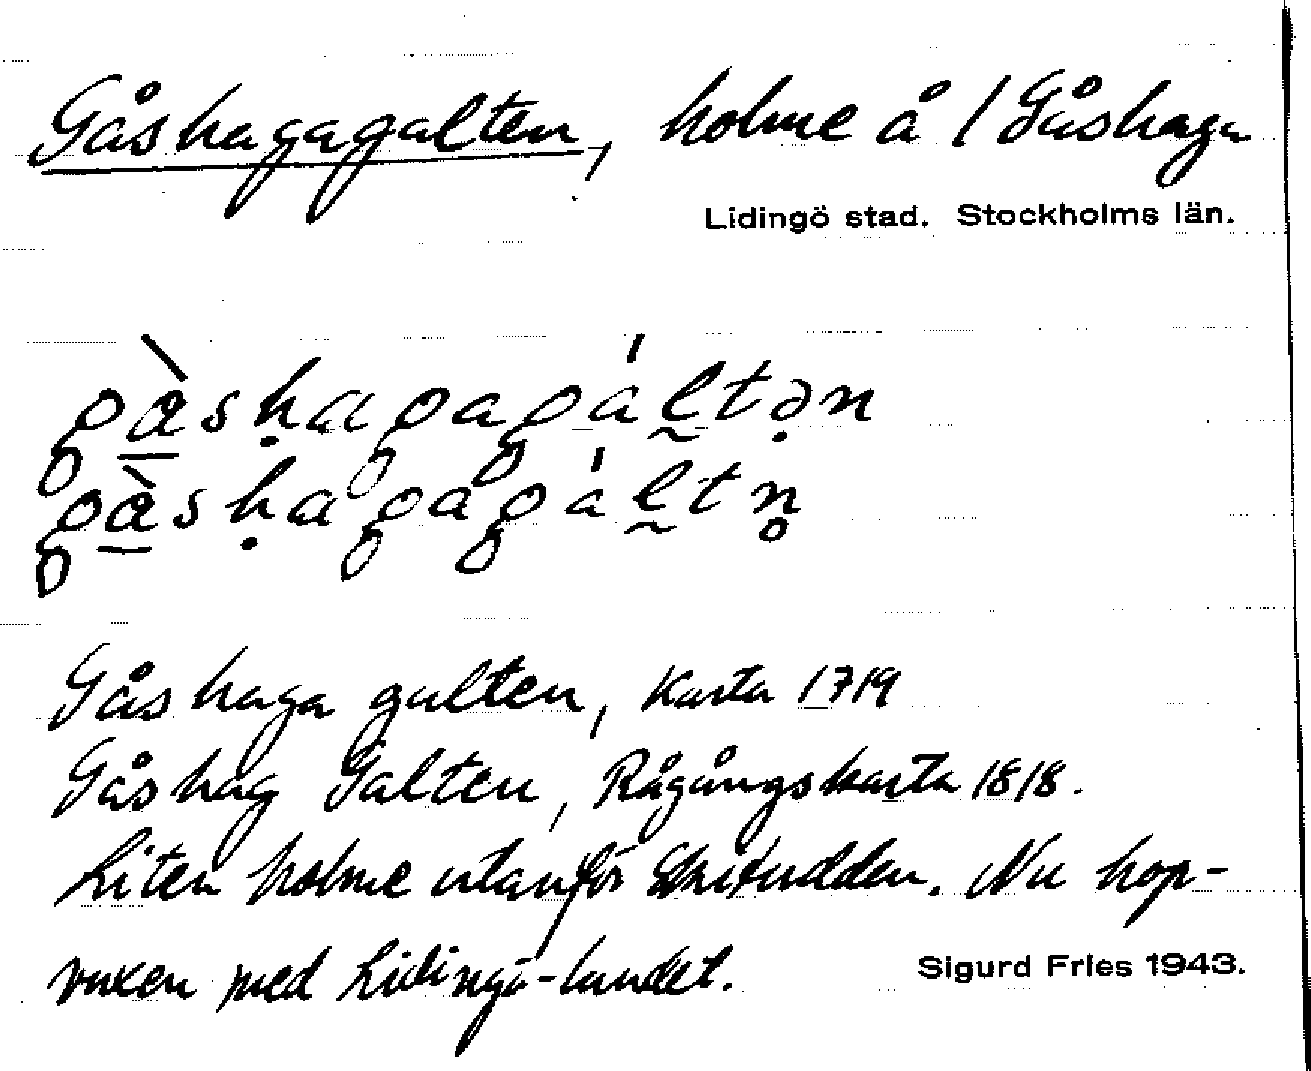 Gåshagagalten, holme å / Gåshaga
Lidingö stad. Stockholms län.
gàsḥagagál̰tə̣n
gàsḥagagál̰tn̥
Gåshaga galten, Karta 1719
Gåshag Galten, Rågångskarta 1818.
Liten holme utanför. Nu hop-
vuxen med Lidingö-landet.
Sigurd Fries 1943.